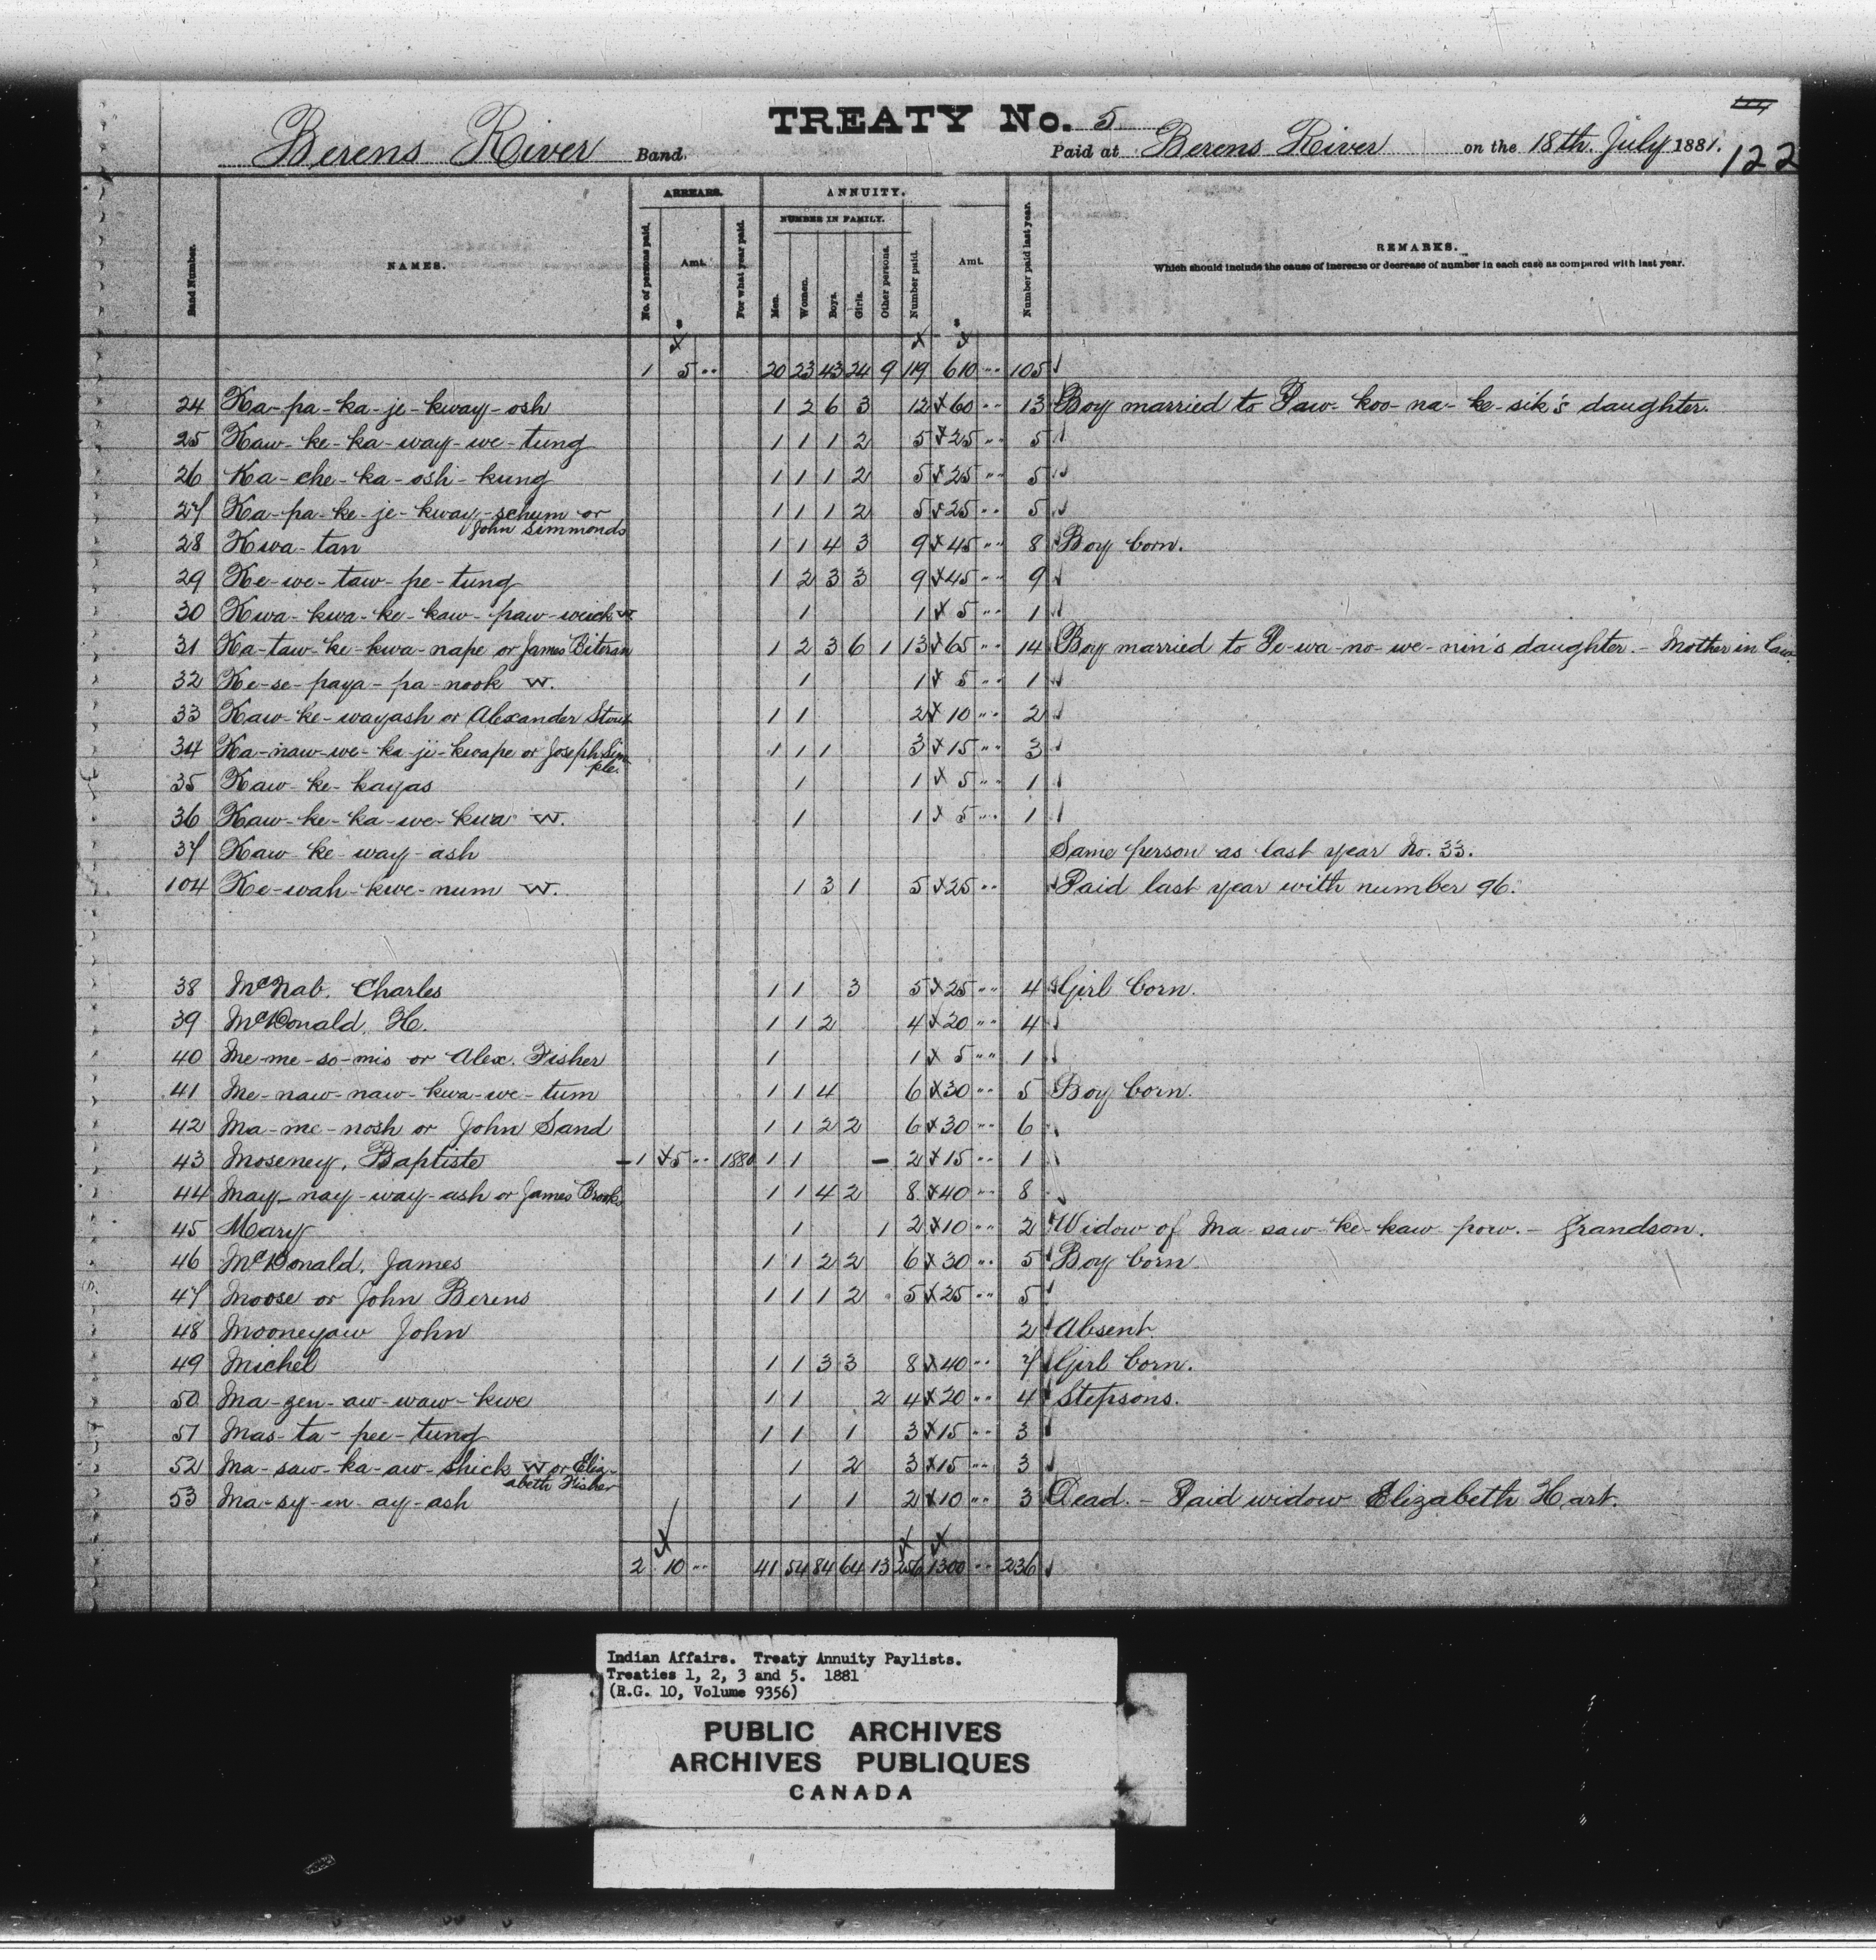 TREATY No. 5
Berens River Band. Paid at Berens River on the 18th. July 1881. 122
ARREARS. ANNUITY.
NUMBER IN FAMILY.
Band Number. NAMES. No. of persons paid. Amt. For what year paid. Men. Women. Boys. Girls. Other persons. Number paid. Amt. Number paid last year. REMARKS.
Which should include the cause of increase or decrease of number in each case as compared with last year.
$ $
1 5 " 20 23 43 24 9 119 610 " 105
24 Ka-pa-ka-je-kway-osh 1 2 6 3 12 x 60 " 13 Boy married to Paw-koo-na-ke-sik's daughter.
25 Kaw-ke-ka-way-we-tung 1 1 1 2 5 x 25 " 5
26 Ka-che-ka-osh-kung 1 1 1 2 5 x 25 " 5
27 Ka-pa-ke-je-kway-schum or 1 1 1 2 5 x 25 " 5
John Simmonds
28 Kwa-tan 1 1 4 3 9 x 45 " 8 Boy born.
29 Ke-we-taw-pe-tung 1 2 3 3 9 x 45 " 9
30 Kwa-kwa-ke-kaw-paw-weick W 1 1 x 5 " 1
31 Ka-taw-ke-kwa-nape or James Biteran 1 2 3 6 1 13 x 65 " 14 Boy married to Pe-wa-no-we-nin's daughter. - Mother in law.
32 Ke-se-paya-pa-nook W. 1 1 x 5 " 1
33 Kaw-ke-wayash or Alexander Stout 1 1 2 x 10 " 2
34 Ka-naw-we-ka-je-kwape or Joseph Sim 1 1 1 3 x 15 " 3
ple.
35 Kaw-ke-kayas 1 1 x 5 " 1
36 Kaw-ke-ka-we-kwa W. 1 1 x 5 " 1
37 Kaw-ke-way-ash Same person as last year No. 33.
104 Ke-wah-kwe-num W. 1 3 1 5 x 25 " Paid last year with number 96.
38 McNab, Charles 1 1 3 5 x 25 " 4 Girl born.
39 McDonald, H. 1 1 2 4 x 20 " 4
40 Me-me-so-mis or Alex. Fisher 1 1 x 5 " 1
41 Me-naw-naw-kwa-we-tum 1 1 4 6 x 30 " 5 Boy born.
42 Ma-me-nosh or John Sand 1 1 2 2 6 x 30 " 6
43 Moseney, Baptiste - 1 x 5 " 1880 1 1 - 2 x 15 " 1
44 May-nay-way-ash or James Brooks 1 1 4 2 8 x 40 " 8
45 Mary 1 1 2 x 10 " 2 Widow of Ma-saw-ke-kaw-pow. - Grandson.
46 McDonald, James 1 1 2 2 6 x 30 " 5 Boy born.
47 Moose or John Berens 1 1 1 2 5 x 25 " 5
48 Mooneyaw John 2 Absent.
49 Michel 1 1 3 3 8 x 40 " 7 Girl born.
50 Ma-gen-aw-waw-kwe 1 1 2 4 x 20 " 4 Stepsons.
51 Mas-ta-pee-tung 1 1 1 3 x 15 " 3
52 Ma-saw-ka-aw-shick W or Eliz- 1 2 3 x 15 " 3
abeth Fisher
53 Ma-sy-en-ay-ash 1 1 2 x 10 " 3 Dead. - Paid widow Elizabeth Hart.
2 10 " 41 54 84 64 13 256 1300 " 236
Indian Affairs. Treaty Annuity Paylists.
Treaties 1, 2, 3 and 5. 1881
(R.G. 10, Volume 9356)
PUBLIC ARCHIVES
ARCHIVES PUBLIQUES
CANADA